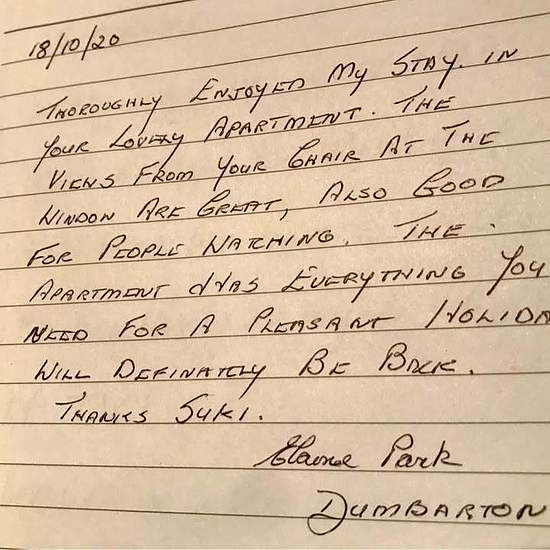 18/10/20
THOROUGHLY ENJOYED MY STAY. IN
YOUR LOVELY APARTMENT. THE
VIEWS FROM YOUR CHAIR AT THE
WINDOW ARE GREAT, ALSO GOOD
FOR PEOPLE WATCHING. THE.
APARTMENT HAS EVERYTHING YOU
NEED FOR A PLEASANT HOLIDA
WILL DEFINATELY BE BACK.
THANKS SUKI.
Elaine Park
DUMBARTON